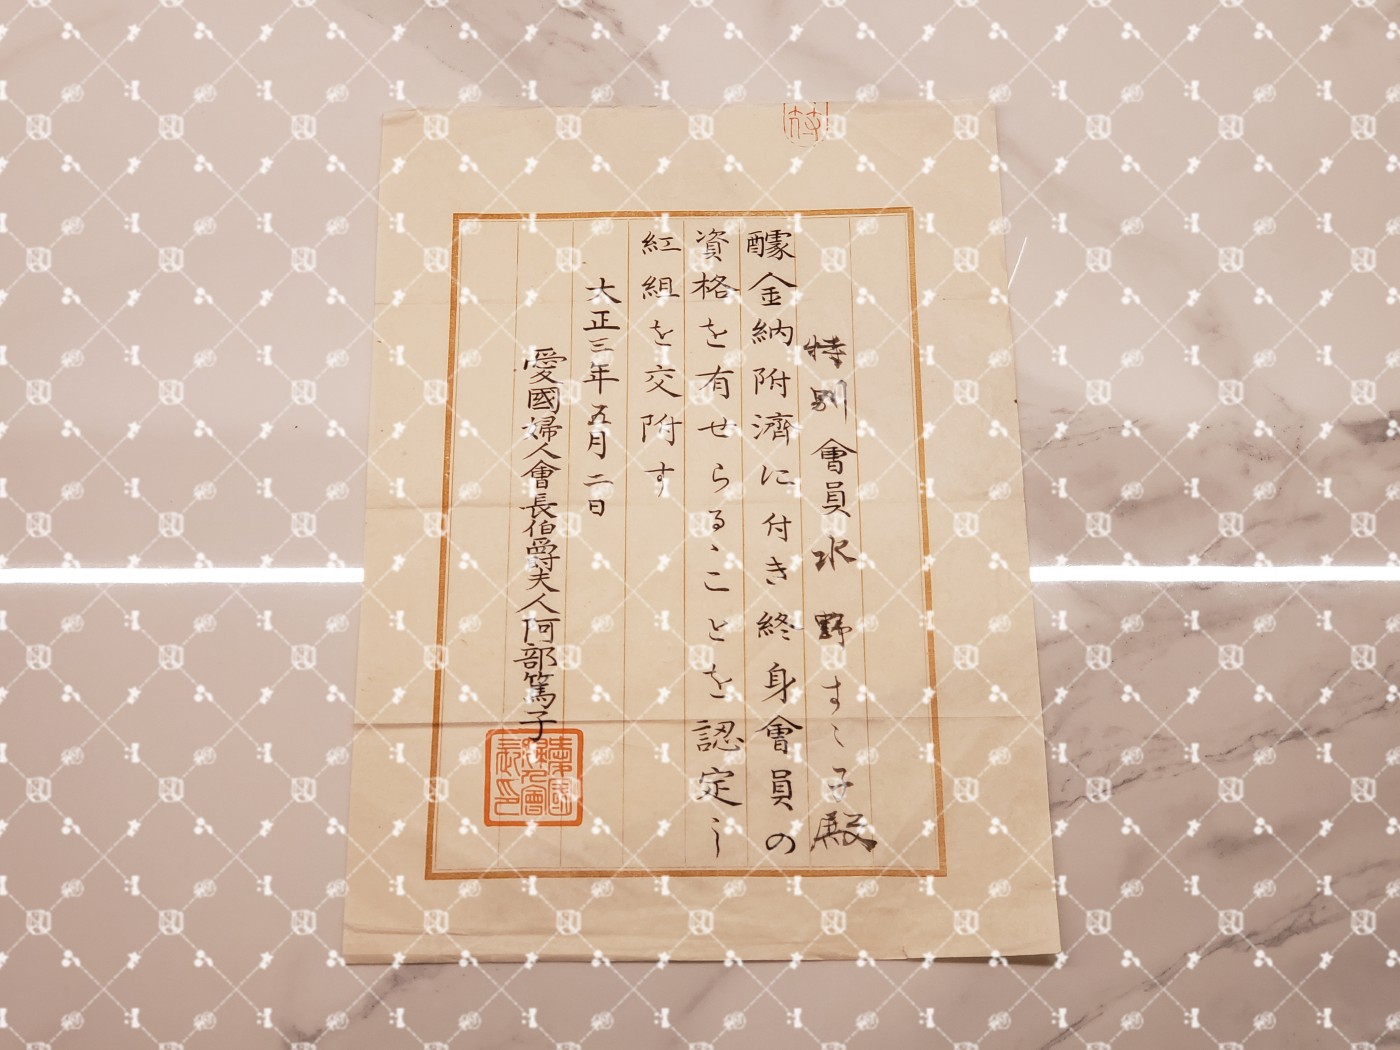 特別會員水野すゝ子殿
醵金納附濟に付き終身會員の
資格を有せらるゝことを認定し
紅組を交附す
大正三年五月二日
愛國婦人會長伯爵夫人阿部篤子
愛國婦人會長印